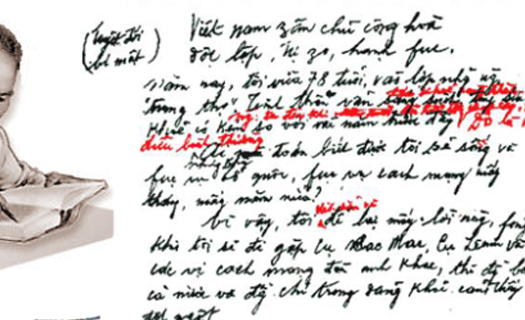 (tuyệt đối
bí mật)
Việt nam zân chủ cộng hoà
độc lập, tự zo, hạnh fúc.
Năm nay, tôi vừa 78 tuổi, vào lớp những
"trung thọ". Tinh thần vẫn sáng suốt
khoẻ có kém so với vài năm trước đây
Ai đoán biết được tôi sẽ sống và
fục vụ tổ quốc, fục vụ cách mạng mấy
tháng, mấy năm nữa?
Vì vậy, tôi để lại mấy lời này, fòng
khi tôi sẽ đi gặp cụ Mac, cụ Lênin và
các vị cách mạng đàn anh khác, thì
cả nước và đ/chí trong đảng khỏi cảm thấy
đột ngột